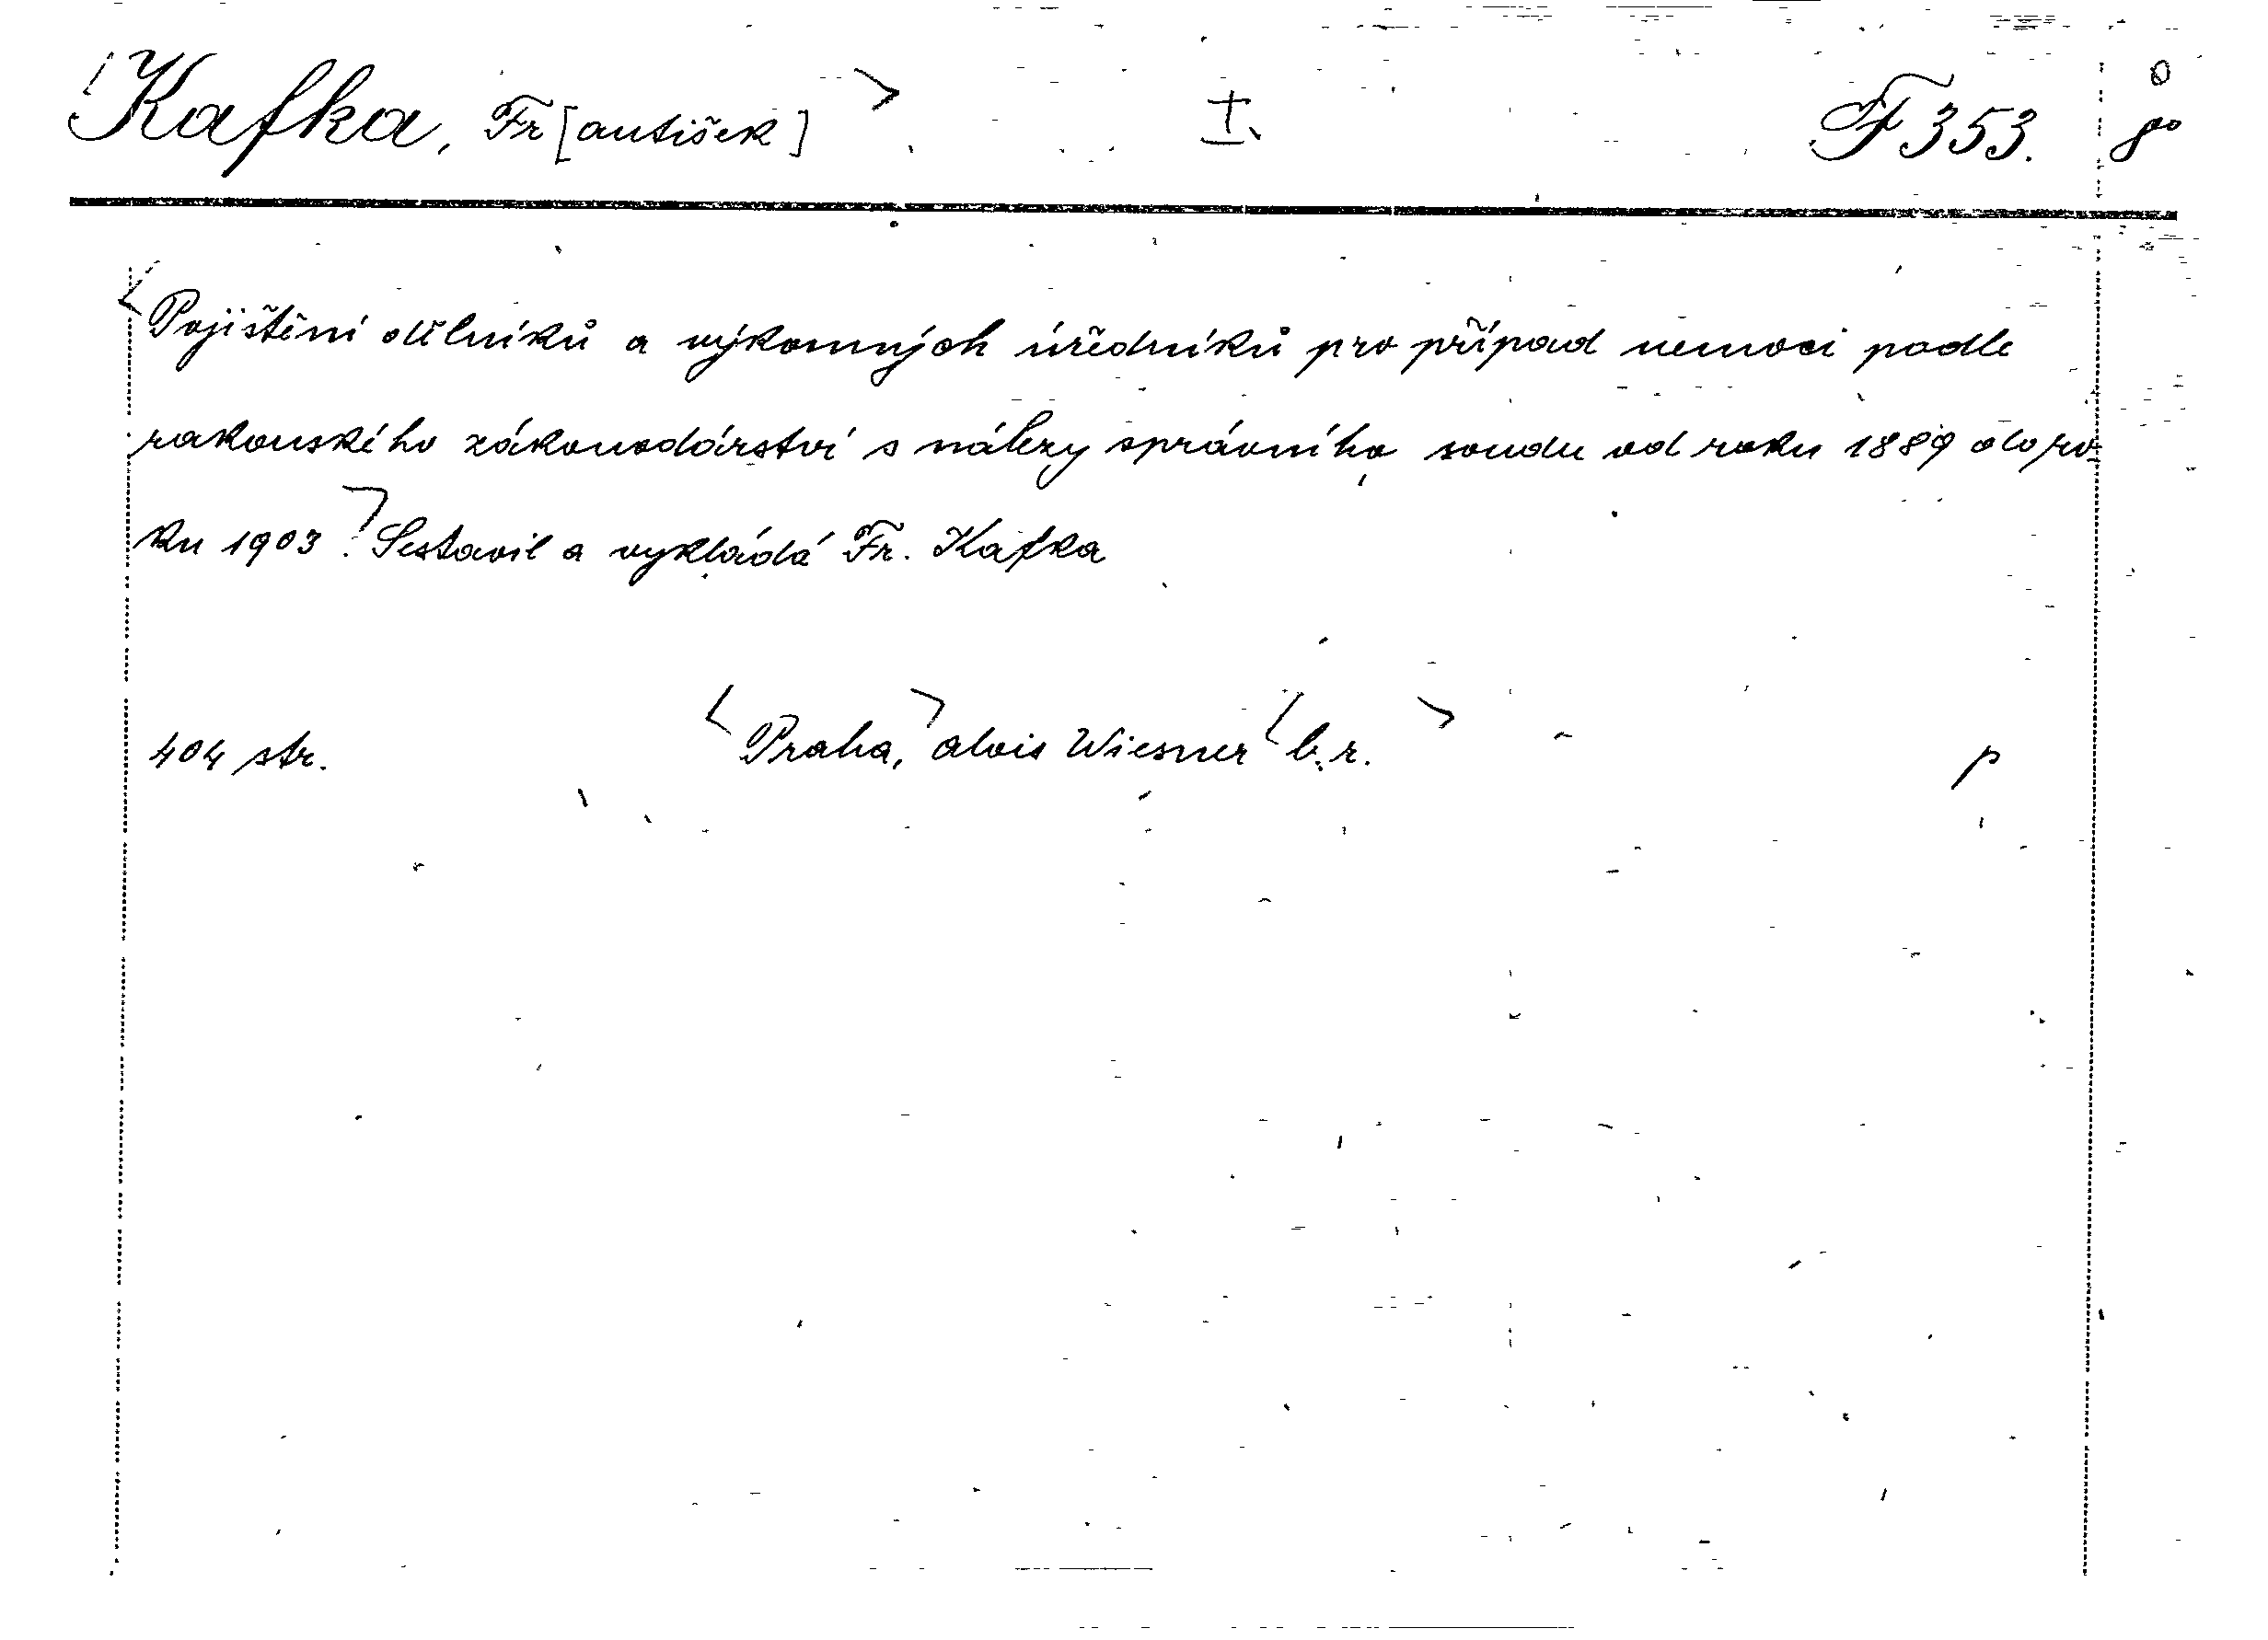 Kafka, Fr[antišek] ± F 353. 8°
Pojištění dělníků a výkonných úředníků pro případ nemoci podle
rakouského zákonodárství s nálezy správního soudu od roku 1889 do ro-
ku 1903. Sestavil a vykládá Fr. Kafka
404 str. Praha, Alois Wiesner b. r. p